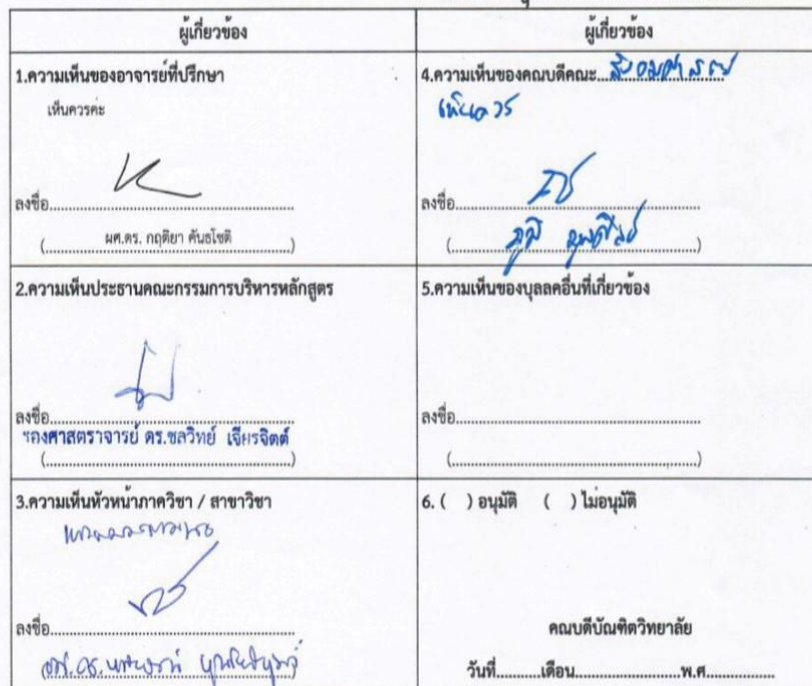 ผู้เกี่ยวข้อง
ผู้เกี่ยวข้อง
1.ความเห็นของอาจารย์ที่ปรึกษา
เห็นควรค่ะ
ลงชื่อ
(ผศ.ดร. กฤติยา คันธโชติ)
4.ความเห็นของคณบดีคณะ สังคมศาสตร์
เห็นควร
ลงชื่อ
2.ความเห็นประธานคณะกรรมการบริหารหลักสูตร
ลงชื่อ
รองศาสตราจารย์ ดร.ชลวิทย์ เจียรจิตต์
5.ความเห็นของบุลลคอื่นที่เกี่ยวข้อง
ลงชื่อ
3.ความเห็นหัวหน้าภาควิชา / สาขาวิชา
ลงชื่อ
6. ( ) อนุมัติ ( ) ไม่อนุมัติ
คณบดีบัณฑิตวิทยาลัย
วันที่..........เดือน......................พ.ศ..............